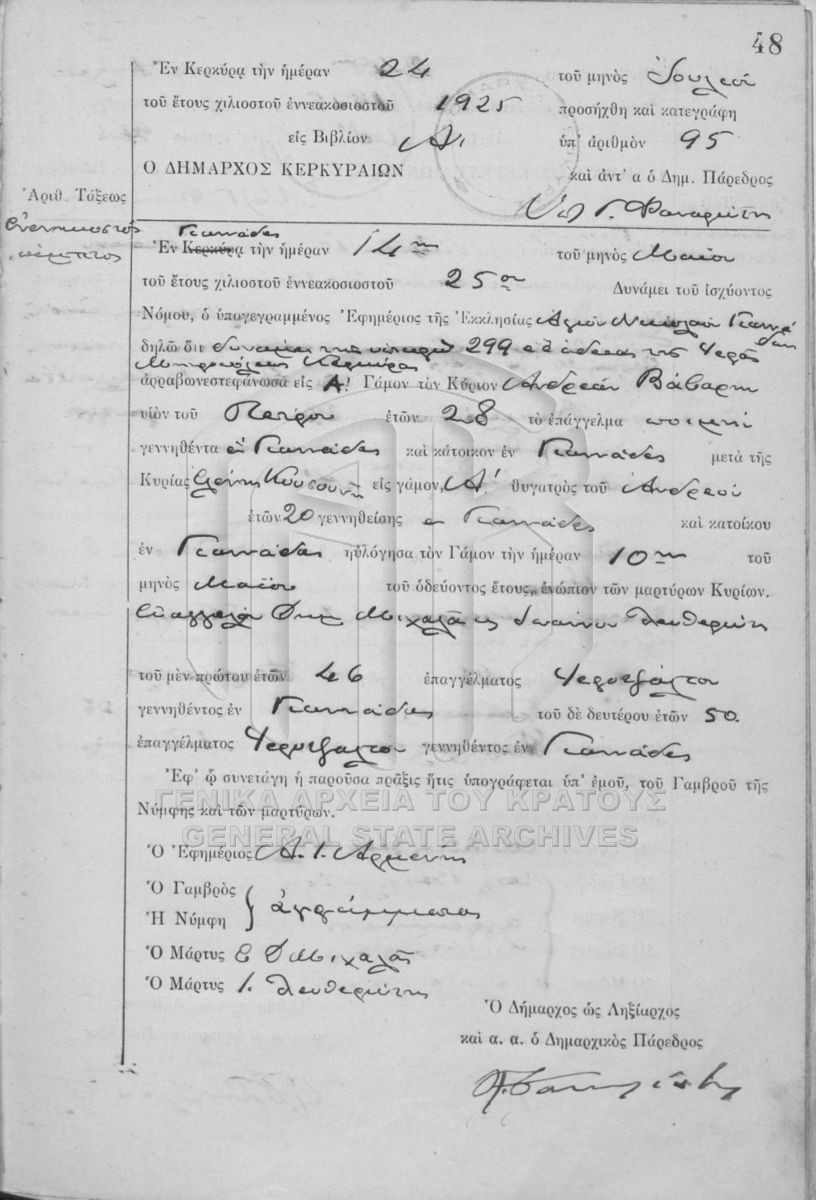 48
Ἐν Κερκύρᾳ τὴν ἡμέραν 24 τοῦ μηνὸς Ἰουλίου
τοῦ ἔτους χιλιοστοῦ ἐννεακοσιοστοῦ 1925 προσήχθη καὶ κατεγράφη
εἰς Βιβλίον Α' ὑπ' ἀριθμὸν 95
Ο ΔΗΜΑΡΧΟΣ ΚΕΡΚΥΡΑΙΩΝ καὶ ἀντ' α ὁ Δημ. Πάρεδρος
Ἀριθ. Τάξεως
Ἐνενηκοστὸς
πέμπτος
Γιαννάδες
Ἐν Κερκύρᾳ τὴν ἡμέραν 14ην τοῦ μηνὸς Μαΐου
τοῦ ἔτους χιλιοστοῦ ἐννεακοσιοστοῦ 25ου Δυνάμει τοῦ ἰσχύοντος
Νόμου, ὁ ὑπογεγραμμένος Ἐφημέριος τῆς Ἐκκλησίας Ἁγίου Νικολάου Γιαννάδων
δηλῶ ὅτι δυνάμει τῆς ὑπ' ἀριθ 299 ἀδείας τῆς Ἱερᾶς
Μητροπόλεως Κερκύρας
ἀρραβωνεστεφάνωσα εἰς Α' Γάμον τὸν Κύριον Ἀνδρέαν Βάβαρη
υἱὸν τοῦ Πέτρου ἐτῶν 28 τὸ ἐπάγγελμα ποιμὴν
γεννηθέντα ἐν Γιαννάδες καὶ κάτοικον ἐν Γιαννάδες μετὰ τῆς
Κυρίας Ἑλένης Κουσουνῆ εἰς γάμον, Α' θυγατρὸς τοῦ Ἀνδρέου
ἐτῶν 20 γεννηθείσης ἐν Γιαννάδες καὶ κατοίκου
ἐν Γιαννάδες ηὐλόγησα τὸν Γάμον τὴν ἡμέραν 10ην τοῦ
μηνὸς Μαΐου τοῦ ὁδεύοντος ἔτους, ἐνώπιον τῶν μαρτύρων Κυρίων.
Εὐαγγέλου Μιχαλᾶ καὶ Ἰωάννου Λευθεριώτη
τοῦ μὲν πρώτου ἐτῶν 46 ἐπαγγέλματος Ἱεροψάλτου
γεννηθέντος ἐν Γιαννάδες τοῦ δὲ δευτέρου ἐτῶν 50.
ἐπαγγέλματος Ἱεροψάλτου γεννηθέντος ἐν Γιαννάδες
Ἐφ' ᾧ συνετάγη ἡ παροῦσα πρᾶξις ἥτις ὑπογράφεται ὑπ' ἐμοῦ, τοῦ Γαμβροῦ τῆς
Νύμφης καὶ τῶν μαρτύρων.
ΓΕΝΙΚΑ ΑΡΧΕΙΑ ΤΟΥ ΚΡΑΤΟΥΣ
GENERAL STATE ARCHIVES
Ὁ Ἐφημέριος Α. Ι. Αρμένης
Ὁ Γαμβρὸς
Ἡ Νύμφη } ἀγράμματοι
Ὁ Μάρτυς Ε Μιχαλᾶς
Ὁ Μάρτυς Ι. Λευθεριώτης
Ὁ Δήμαρχος ὡς Ληξίαρχος
καὶ α. α. ὁ Δημαρχικὸς Πάρεδρος